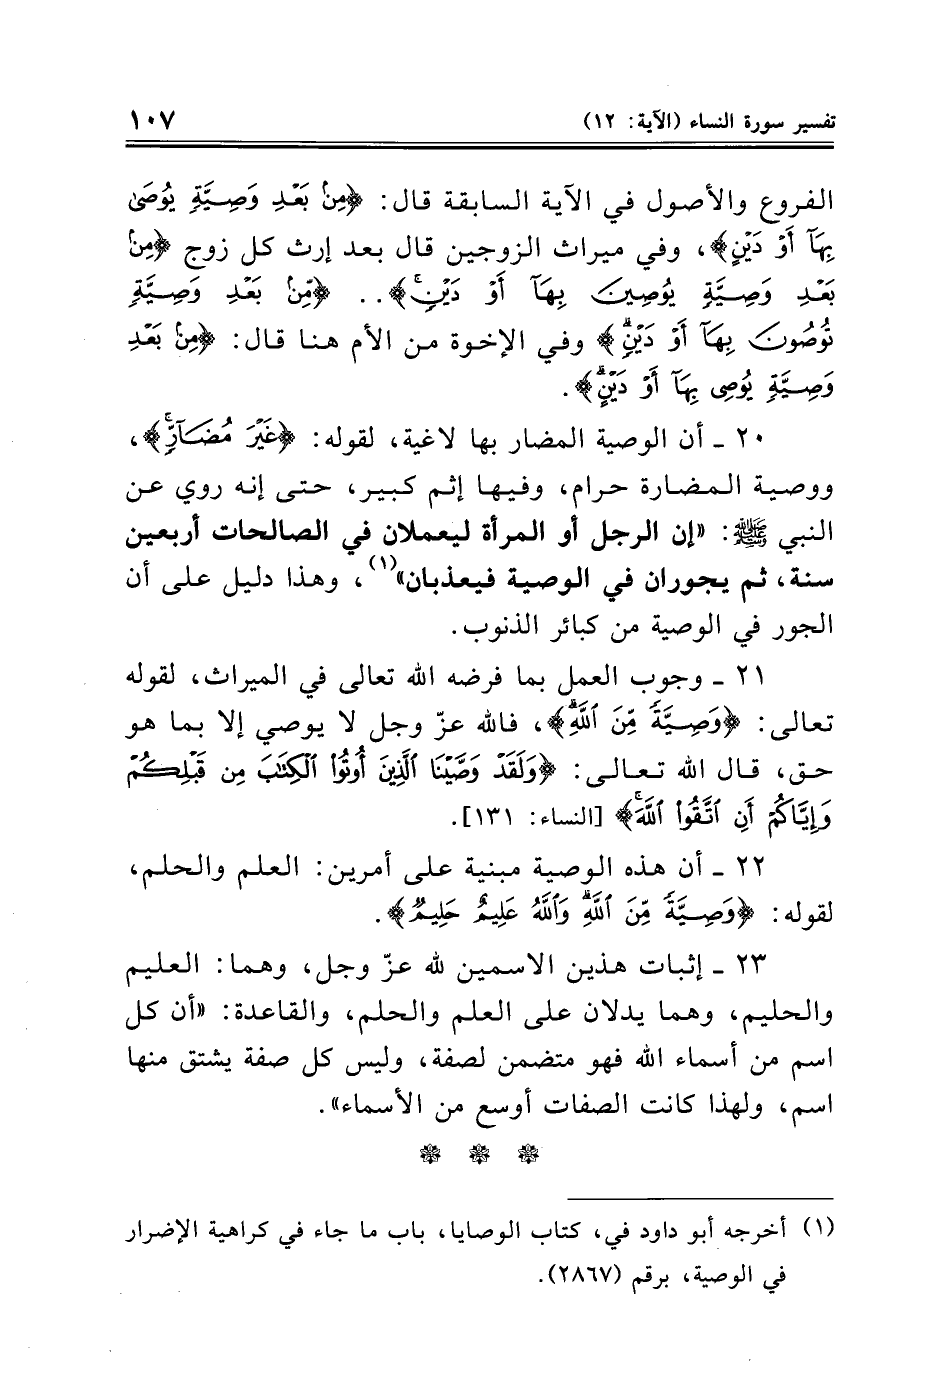 تفسير سورة النساء (الآية: ١٢) ١٠٧
الفروع والأصول في الآية السابقة قال: ﴿مِنۢ بَعْدِ وَصِيَّةٍ يُوصَىٰ
بِهَآ أَوْ دَيْنٍ﴾، وفي ميراث الزوجين قال بعد إرث كل زوج ﴿مِنۢ
بَعْدِ وَصِيَّةٍ يُوصِينَ بِهَآ أَوْ دَيْنٍۚ﴾.. ﴿مِّنۢ بَعْدِ وَصِيَّةٍ
تُوصُونَ بِهَآ أَوْ دَيْنٍۗ﴾ وفي الإخوة من الأم هنا قال: ﴿مِنۢ بَعْدِ
وَصِيَّةٍ يُوصِى بِهَآ أَوْ دَيْنٍۗ﴾.
٢٠ ـ أن الوصية المضار بها لاغية، لقوله: ﴿غَيْرَ مُضَآرٍّۚ﴾،
ووصية المضارة حرام، وفيها إثم كبير، حتى إنه روي عن
النبي ﷺ: «إن الرجل أو المرأة ليعملان في الصالحات أربعين
سنة، ثم يجوران في الوصية فيعذبان»(١)، وهذا دليل على أن
الجور في الوصية من كبائر الذنوب.
٢١ ـ وجوب العمل بما فرضه الله تعالى في الميراث، لقوله
تعالى: ﴿وَصِيَّةً مِّنَ ٱللَّهِۗ﴾، فالله عزّ وجل لا يوصي إلا بما هو
حق، قال الله تعالى: ﴿وَلَقَدْ وَصَّيْنَا ٱلَّذِينَ أُوتُوا۟ ٱلْكِتَٰبَ مِن قَبْلِكُمْ
وَإِيَّاكُمْ أَنِ ٱتَّقُوا۟ ٱللَّهَۚ﴾ [النساء: ١٣١].
٢٢ ـ أن هذه الوصية مبنية على أمرين: العلم والحلم،
لقوله: ﴿وَصِيَّةً مِّنَ ٱللَّهِۗ وَٱللَّهُ عَلِيمٌ حَلِيمٌ﴾.
٢٣ ـ إثبات هذين الاسمين لله عزّ وجل، وهما: العليم
والحليم، وهما يدلان على العلم والحلم، والقاعدة: «أن كل
اسم من أسماء الله فهو متضمن لصفة، وليس كل صفة يشتق منها
اسم، ولهذا كانت الصفات أوسع من الأسماء».
(١) أخرجه أبو داود في، كتاب الوصايا، باب ما جاء في كراهية الإضرار
في الوصية، برقم (٢٨٦٧).